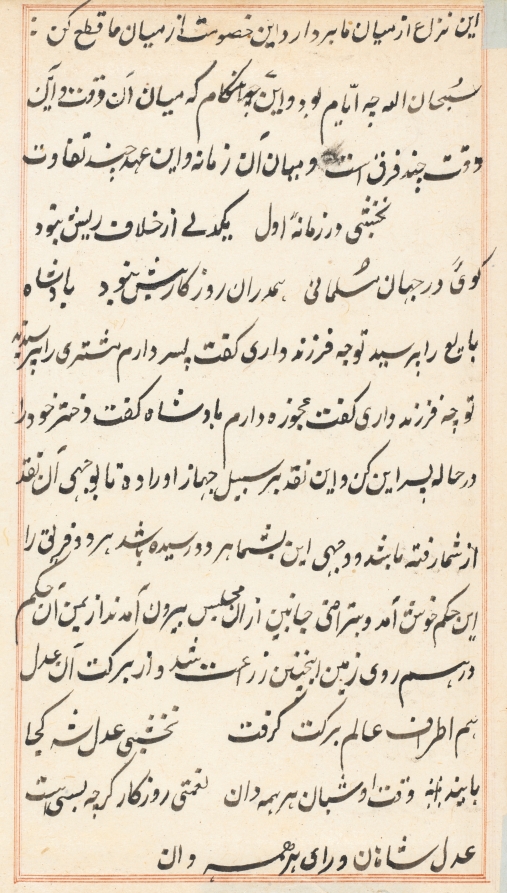 این نزاع از میان ما بردار و این خصومت از میان ما قطع کن
سبحان الله چه ایام بود و این چه هنگام که میان آن وقت و این
وقت چند فرق است و میان آن زمانه و این عهد چند تفاوت
نخشبی در زمانه اول یکدلے از خلاف ریش نبود
کوئی در جهان مسلمانی همدران روزگار بیش نبود بادشاه
بایع را پرسید تو چه فرزند داری کفت پسر دارم مشتری را پرسید
تو چه فرزند داری کفت عجوزه دارم بادشاه کفت دختر خود را
در حاله پسر این کن و این نقد بر سبیل جهاز او را ده تا بوجهی آن نقد
از شما رفته باشد و وجهی این بشما هر دو رسیده باشد هر دو فریق را
این حکم خوش آمد و بتراضی جانبین از ان مجلس بیرون آمدند از یمن آن حکم
در همه روی زمین اینچنین زرعت شد و از برکت آن عدل
هم اطراف عالم برکت گرفت نخشبی عدل شه کجا
یابند وقت او شبان هر همه دان نعمتی روزگار کرچه بسی است
عدل شاهان ورای هر همه دان